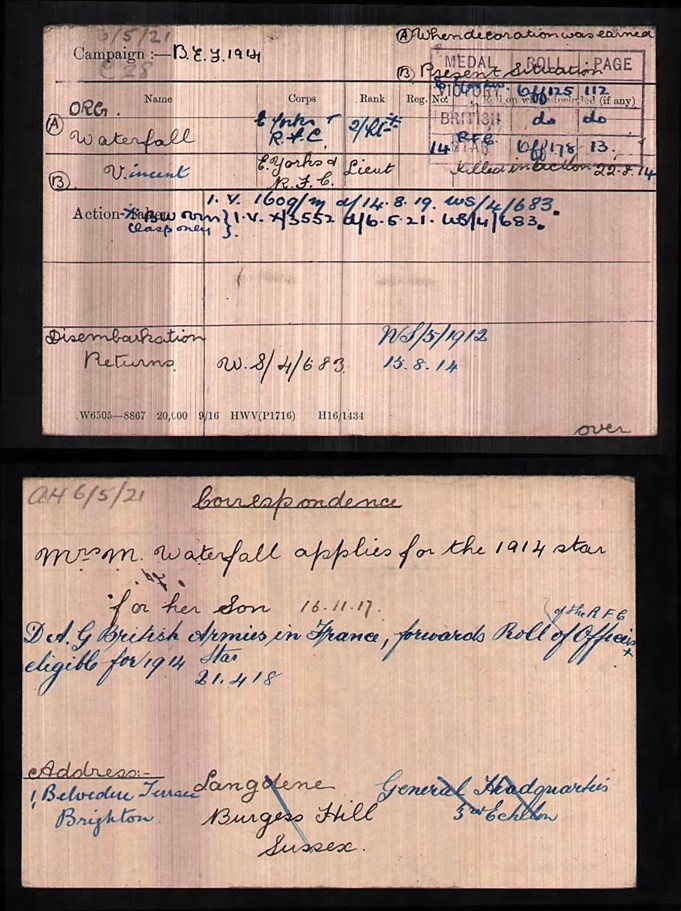 6/5/21
Ⓐ When decoration was earned
Campaign :— B.E.F. 1914
Ⓑ Present Situation
MEDAL ROLL PAGE
Name Corps Rank Reg. No. Roll on which included (if any)
VICTORY Off 125 112
ORG.
Ⓐ Waterfall E Yorks & R.F.C. 2/Lt
BRITISH do do
14 STAR R.F.C. Off 178 13.
Ⓑ. Vincent E. Yorks & R.F.C. Lieut
Killed in action 22.8.14
Action Taken I.V. 1609/m d/14.8.19. WS/4/683.
(clasp only) } I.V. X/3552 d/6.5.21. WS/4/683.
Disembarkation WS/5/1912
Returns W.S/4/683. 15.8.14
W6505—8867 20,000 9/16 HWV(P1716) H16/1434
over
6/5/21 Correspondence
Mrs M. Waterfall applies for the 1914 star
for her Son 16.11.17.
of the R F C
D.A.G British Armies in France, forwards Roll of Officers
eligible for 1914 Star
21.4.18
Address:-
1, Belvedere Terrace
Brighton
Langdene
Burgess Hill
Sussex.
General Headquarters
3rd Echelon